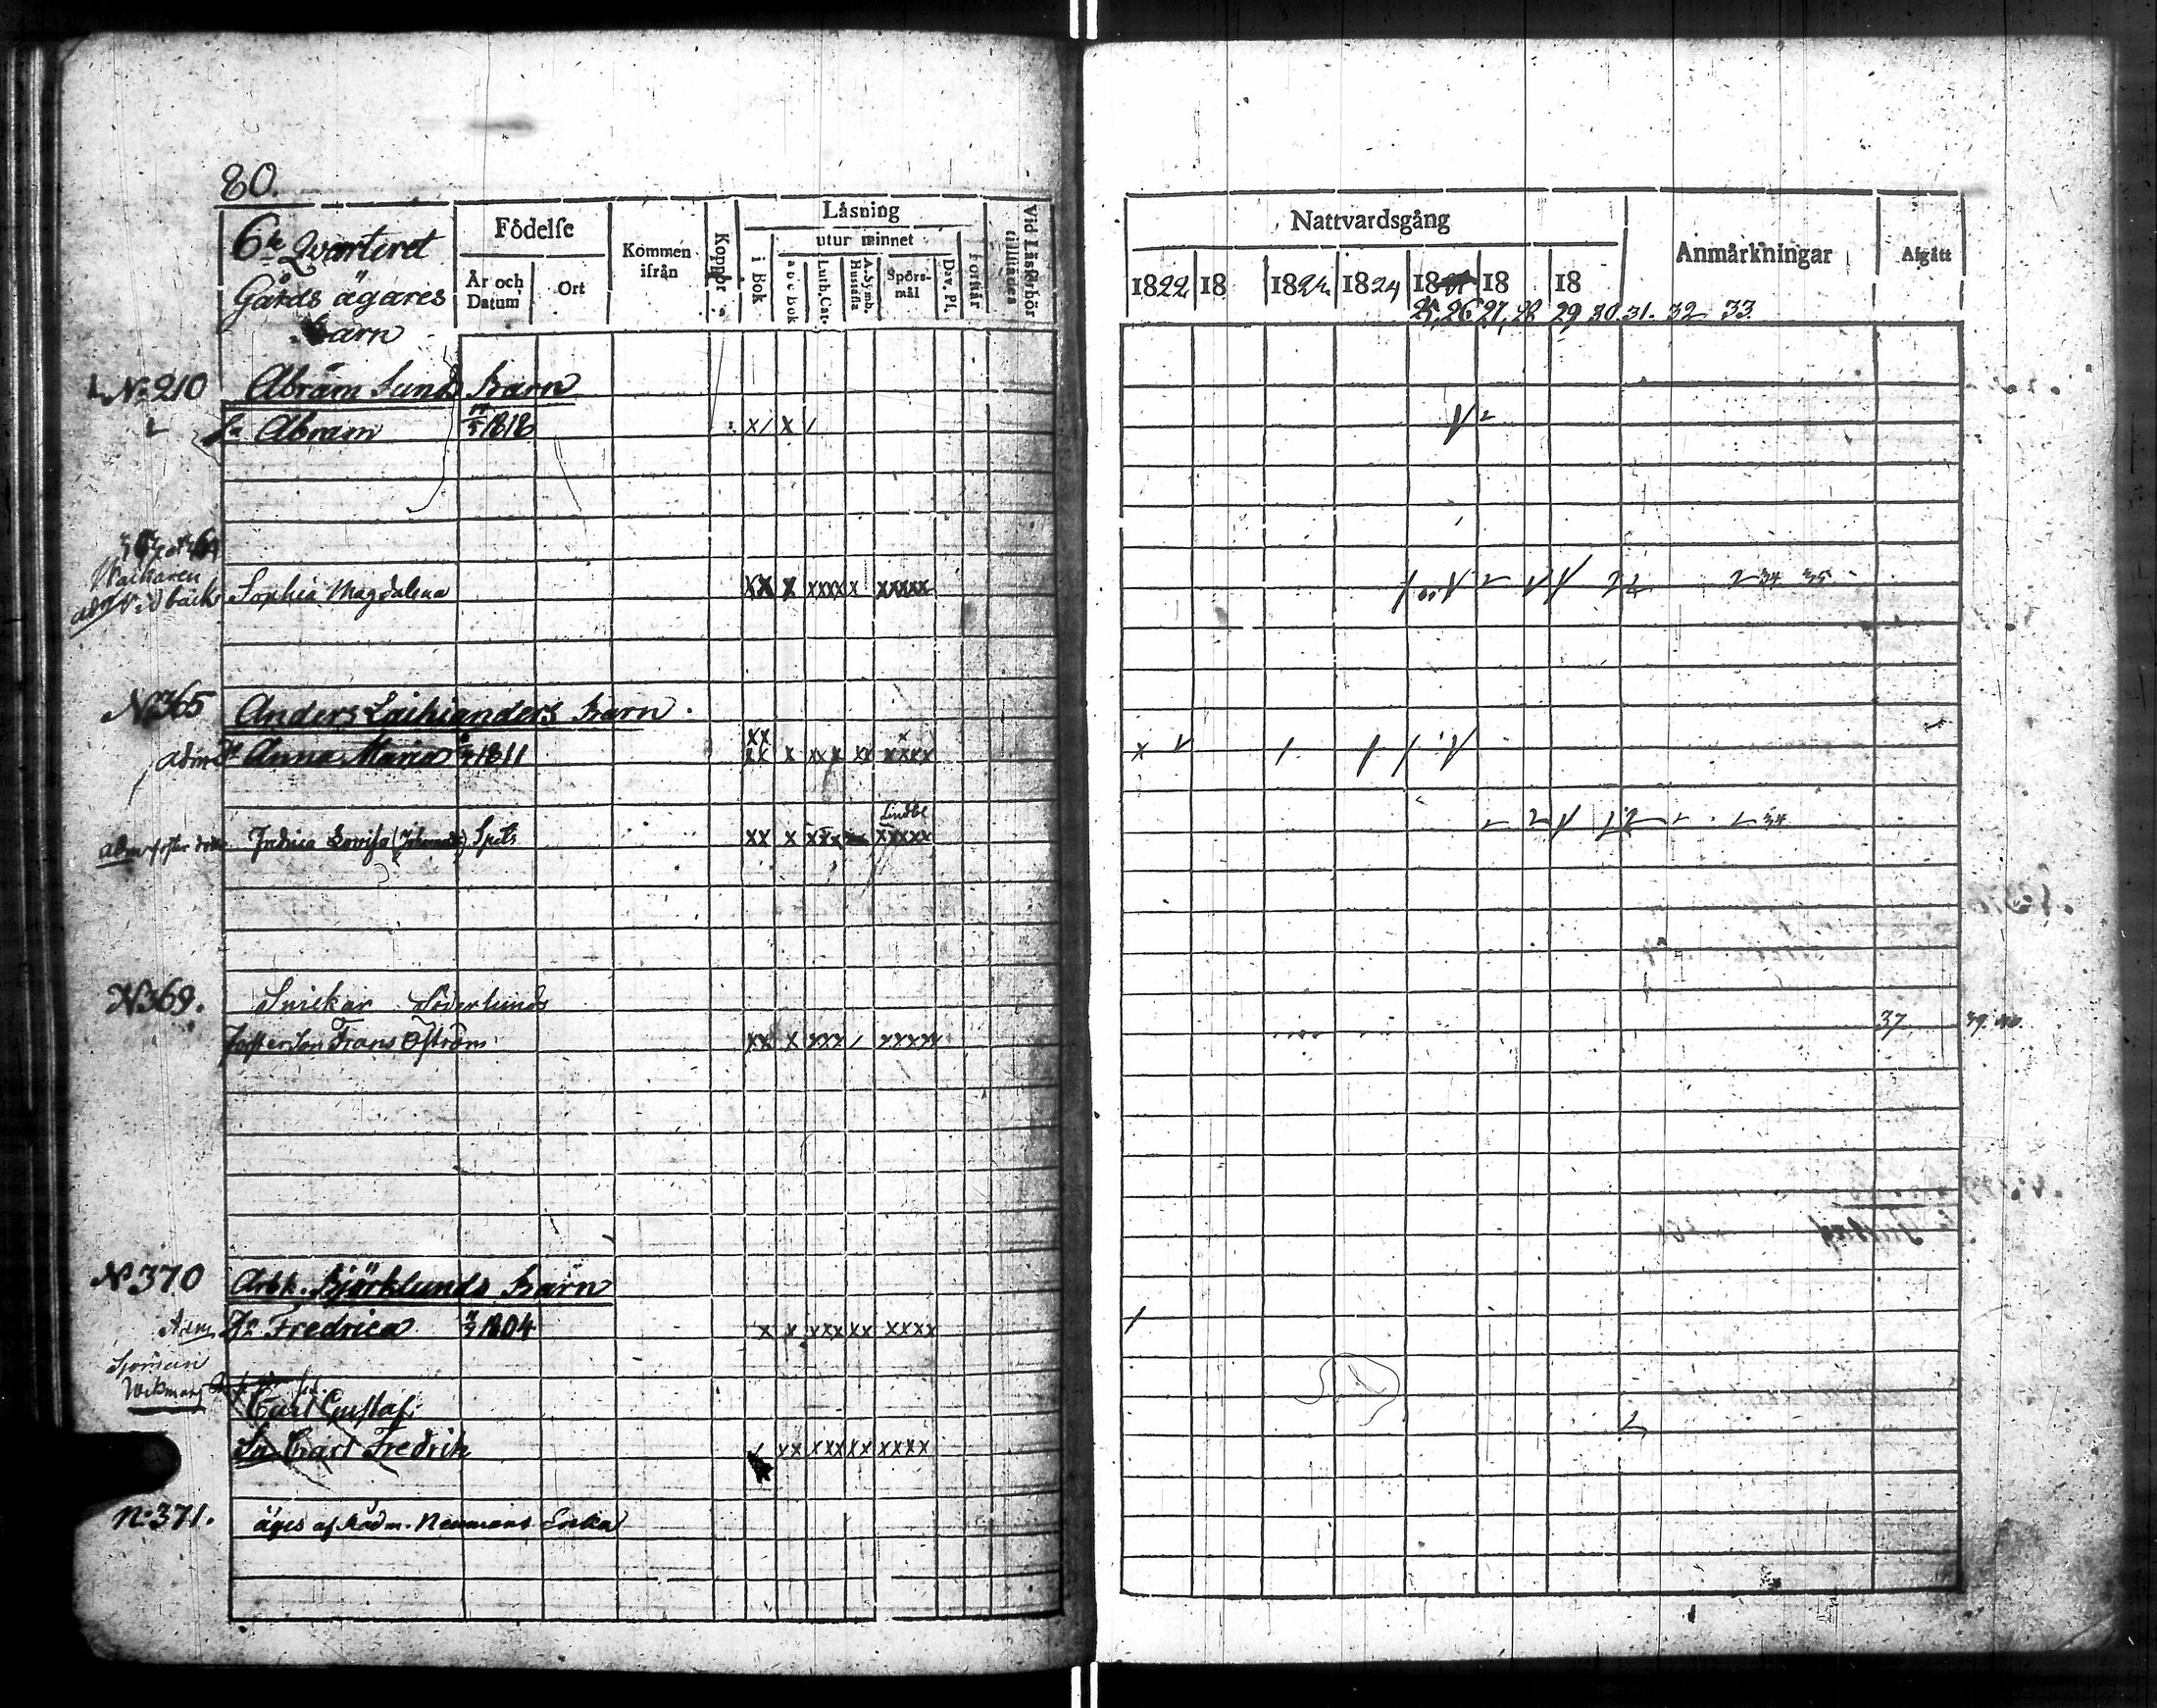 80.
6te Qvarteret
Gårds ägares
Barn
Födelse
År och Datum
Ort
Kommen ifrån
Koppor
Läsning
i Bok
utur minnet
a b c bok
Luth. Cat.
A. Symb. Hustafla
Spörsmål
Dav. Pl.
Förstår
Vid Läsförhör tillstädes
Nattvardsgång
1822 18 1824 1824 18 18 18
25, 26 27, 28 29 30 31. 32 33
Anmärkningar
Afgått
No 210 Abram Lunds Barn
Sn Abram 1818 x/ x /
Sophia Magdalena xx x xxxx x xxxxx 34 35
No 365 Anders Laihianders Barn.
Adm Dr Anna Maria 1811 xx xx x xxx xx x xxxx
Lindbl
Fredrica Lovisa xx x xxx xxxxx 34
No 369. Snickar Söderlunds
Foster Son Frans Öström xx x xxx / xxxxx 37 39. 40.
No 370 Arbk. Björklunds Barn
Adm Dr Fredrica 1804 x x xxx xx xxxx
Sjöman
Wekman
Carl Gustaf
Sn Carl Fredrik xx xxx xx xxxx
No 371. äges af Rådm. Neumans Enka